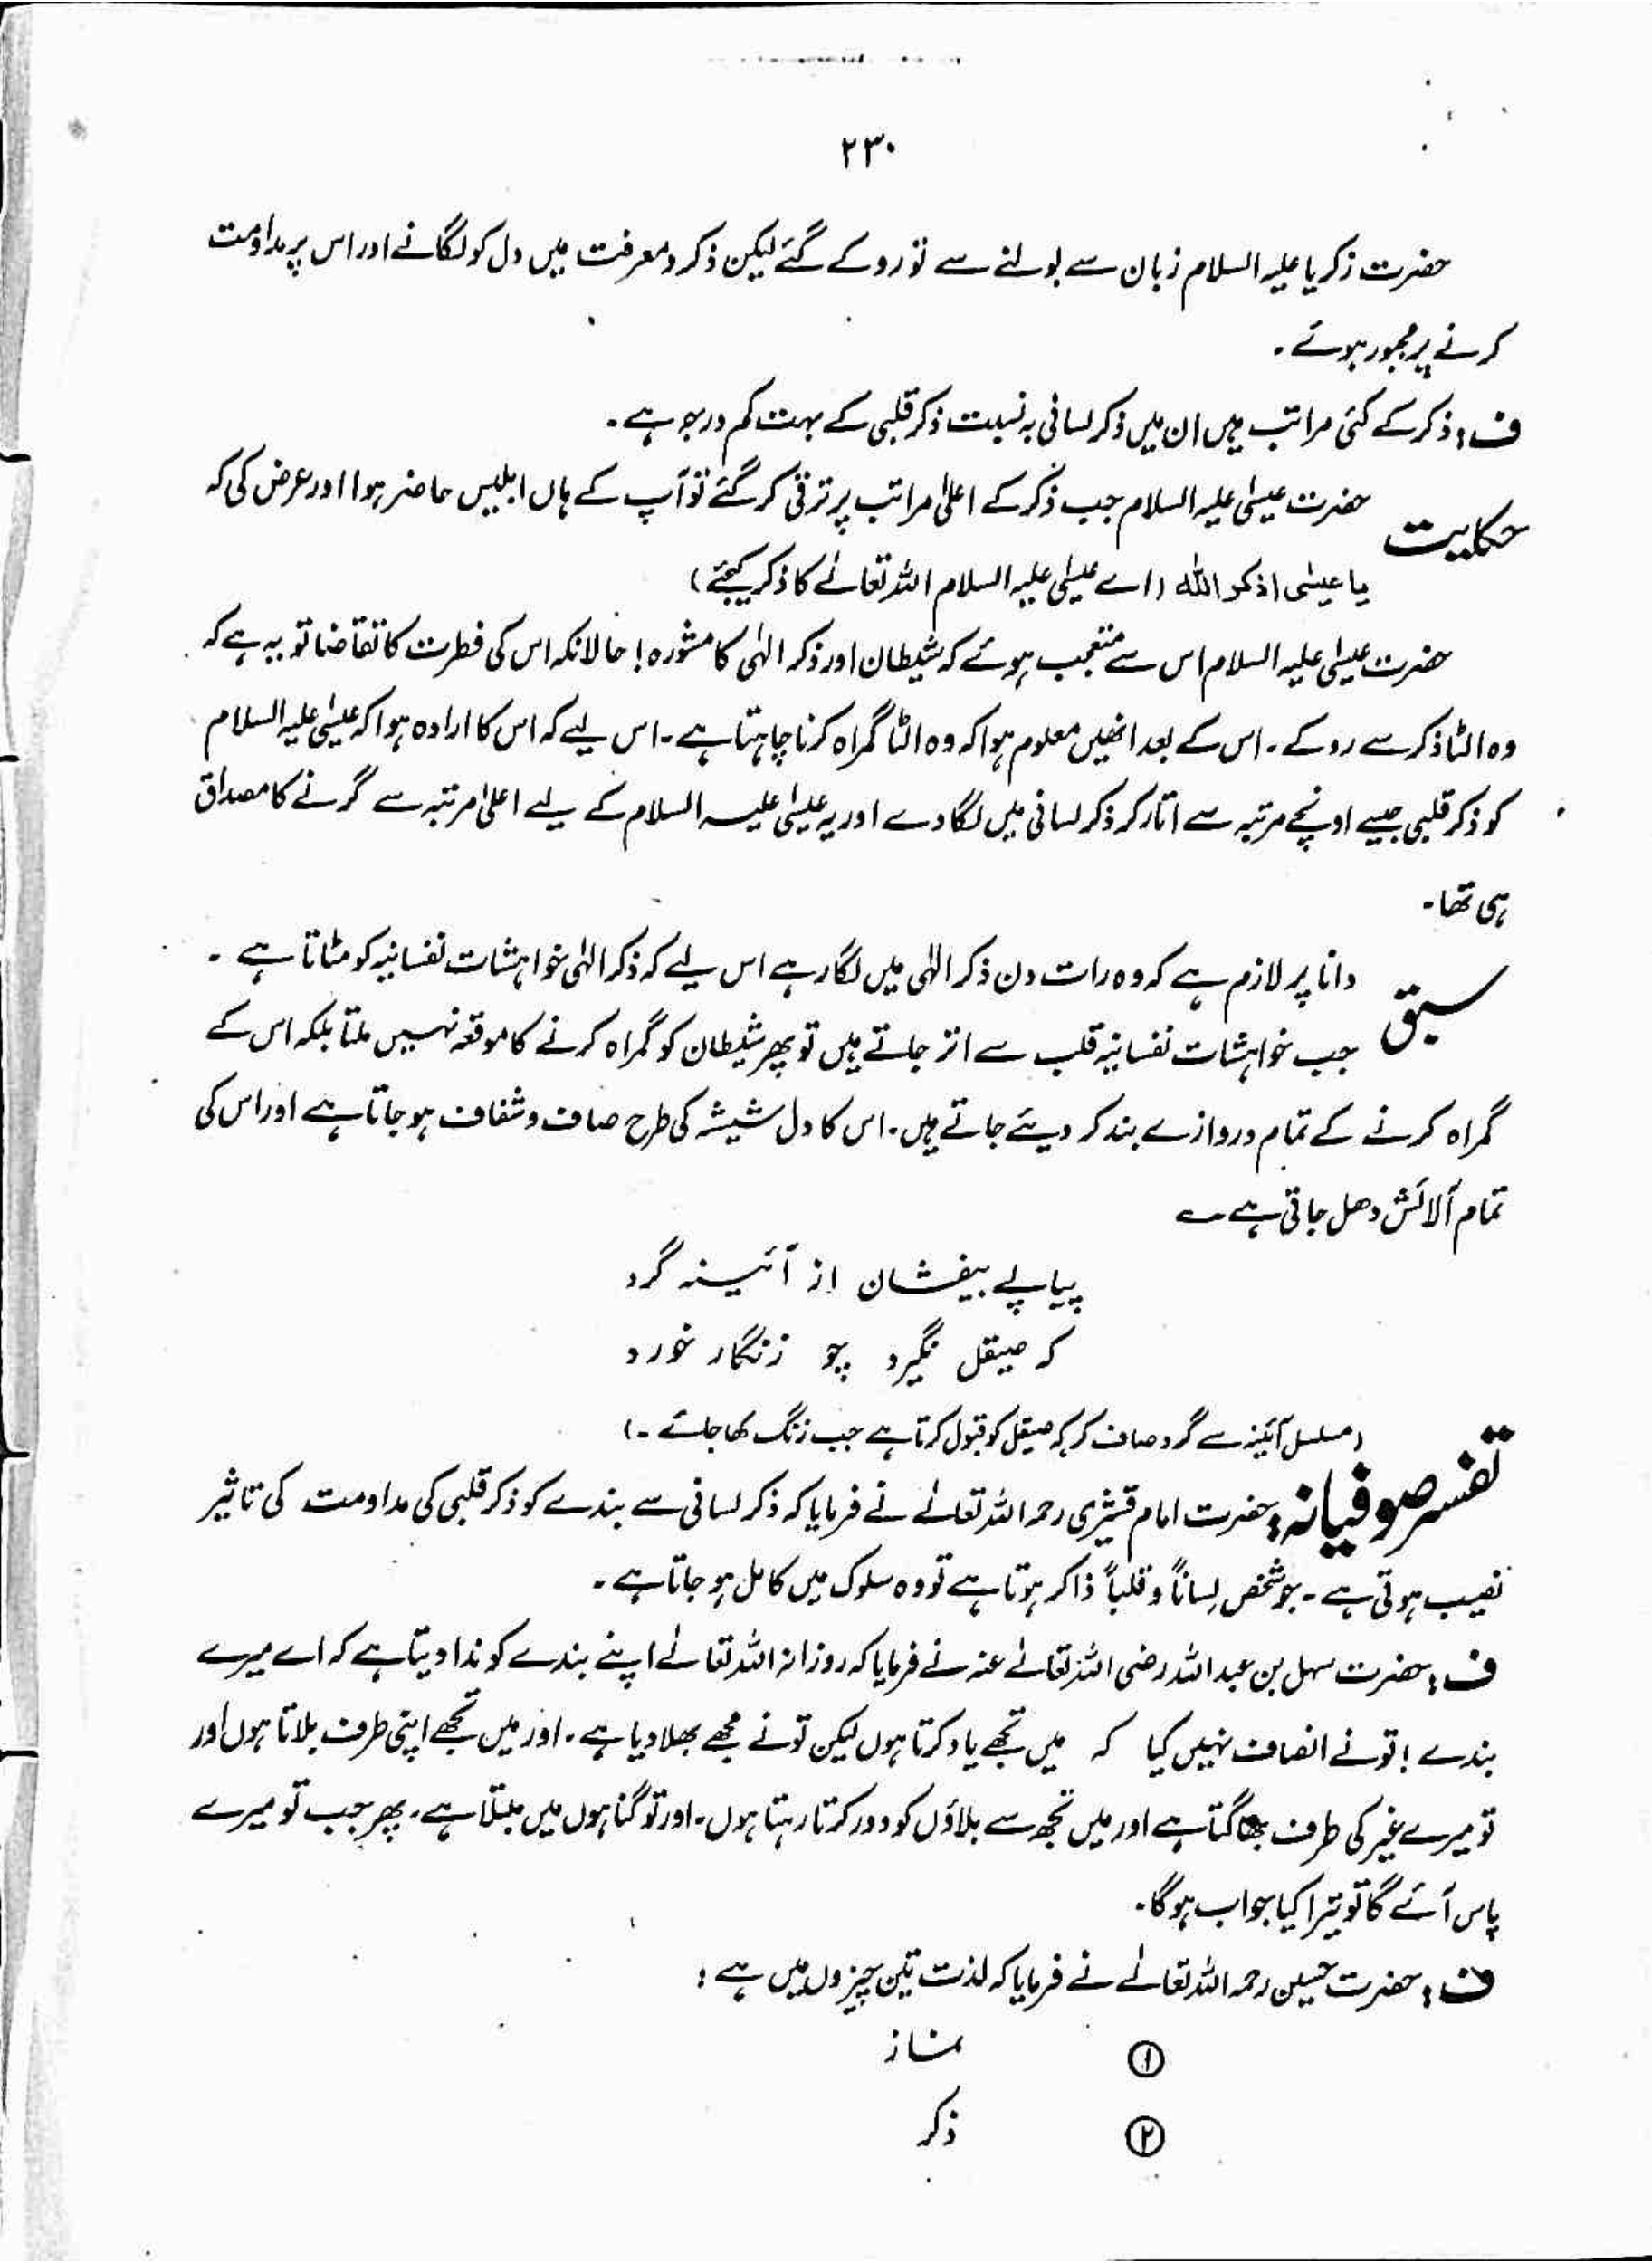 ۲۳۰
حضرت زکریا علیہ السلام زبان سے بولنے سے تو روکے گئے لیکن ذکر و معرفت میں دل کو لگانے اور اس پر مداومت
کرنے پر مجبور ہوئے۔
ف: ذکر کے کئی مراتب ہیں ان میں ذکر لسانی بہ نسبت ذکر قلبی کے بہت کم درجہ ہے۔
حکایت حضرت عیسیٰ علیہ السلام جب ذکر کے اعلیٰ مراتب پر ترقی کر گئے تو آپ کے ہاں ابلیس حاضر ہوا اور عرض کی کہ
یا عیسٰی اذکر اللہ (اے عیسیٰ علیہ السلام اللہ تعالےٰ کا ذکر کیجئے)
حضرت عیسیٰ علیہ السلام اس سے متعجب ہوئے کہ شیطان اور ذکر الٰہی کا مشورہ! حالانکہ اس کی فطرت کا تقاضا تو یہ ہے کہ
وہ الٹا ذکر سے روکے۔ اس کے بعد انھیں معلوم ہوا کہ وہ الٹا گمراہ کرنا چاہتا ہے۔ اس لیے کہ اس کا ارادہ ہوا کہ عیسیٰ علیہ السلام
کو ذکر قلبی جیسے اونچے مرتبہ سے اتار کر ذکر لسانی میں لگا دے اور یہ عیسیٰ علیہ السلام کے لیے اعلیٰ مرتبہ سے گرنے کا مصداق
ہی تھا۔
سبق دانا پر لازم ہے کہ وہ رات دن ذکر الٰہی میں لگا رہے اس لیے کہ ذکر الٰہی خواہشات نفسانیہ کو مٹاتا ہے۔
جب خواہشات نفسانیہ قلب سے اتر جاتے ہیں تو پھر شیطان کو گمراہ کرنے کا موقعہ نہیں ملتا بلکہ اس کے
گمراہ کرنے کے تمام دروازے بند کر دیئے جاتے ہیں۔ اس کا دل شیشہ کی طرح صاف و شفاف ہو جاتا ہے اور اس کی
تمام آلائش دھل جاتی ہے ؎
پیاپے بیفشان از آئینہ گرد
کہ صیقل نگیرد چو زنگار خورد
(مسلسل آئینہ سے گرد صاف کر کہ صیقل کو قبول کرتا ہے جب زنگ کھا جائے۔)
تفسیر صوفیانہ: حضرت امام قشیری رحمہ اللہ تعالےٰ نے فرمایا کہ ذکر لسانی سے بندے کو ذکر قلبی کی مداومت کی تاثیر
نصیب ہوتی ہے۔ جو شخص لساناً و قلباً ذاکر ہوتا ہے تو وہ سلوک میں کامل ہو جاتا ہے۔
ف: حضرت سہل بن عبداللہ رضی اللہ تعالےٰ عنہ نے فرمایا کہ روزانہ اللہ تعالےٰ اپنے بندے کو ندا دیتا ہے کہ اے میرے
بندے! تو نے انصاف نہیں کیا کہ میں تجھے یاد کرتا ہوں لیکن تو نے مجھے بھلا دیا ہے۔ اور میں تجھے اپنی طرف بلاتا ہوں اور
تو میرے غیر کی طرف بھاگتا ہے اور میں تجھ سے بلاؤں کو دور کرتا رہتا ہوں۔ اور تو گناہوں میں مبتلا ہے۔ پھر جب تو میرے
پاس آئے گا تو تیرا کیا جواب ہوگا۔
ف: حضرت حسین رحمہ اللہ تعالےٰ نے فرمایا کہ لذت تین چیزوں میں ہے:
① نماز
② ذکر